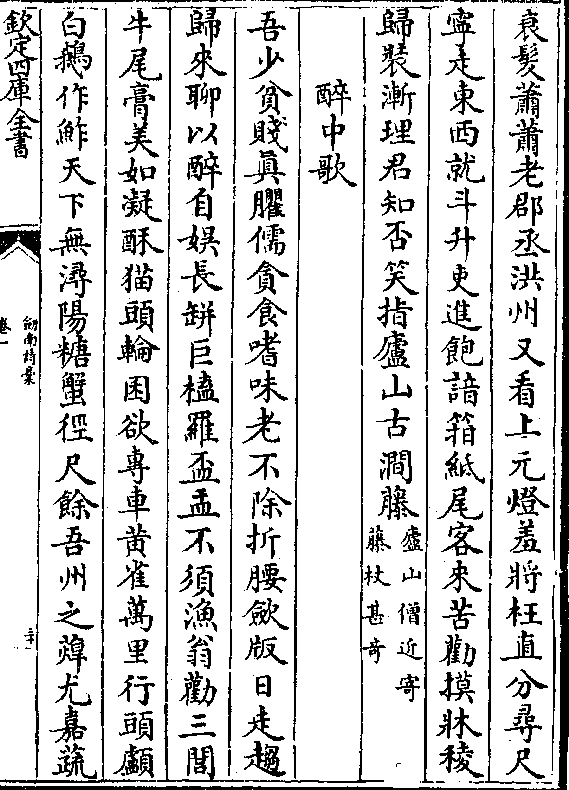 衰髮蕭蕭老郡丞洪州又看上元燈羞將枉直分尋尺
寧走東西就斗升吏進飽諳箝紙尾客來苦勸摸牀稜
歸裝漸理君知否笑指廬山古澗藤
廬山僧近寄
藤杖甚奇
醉中歌
吾少貧賤眞臞儒貪食嗜味老不除折腰斂版日走趨
歸來聊以醉自娱長缾巨榼羅盃盂不須漁翁勸三閭
牛尾膏美如凝酥猫頭輪囷欲專車黄雀萬里行頭顱
白鵝作鮓天下無潯陽糖蟹徑尺餘吾州之蓴尤嘉蔬
欽定四庫全書
劒南詩稾
卷一